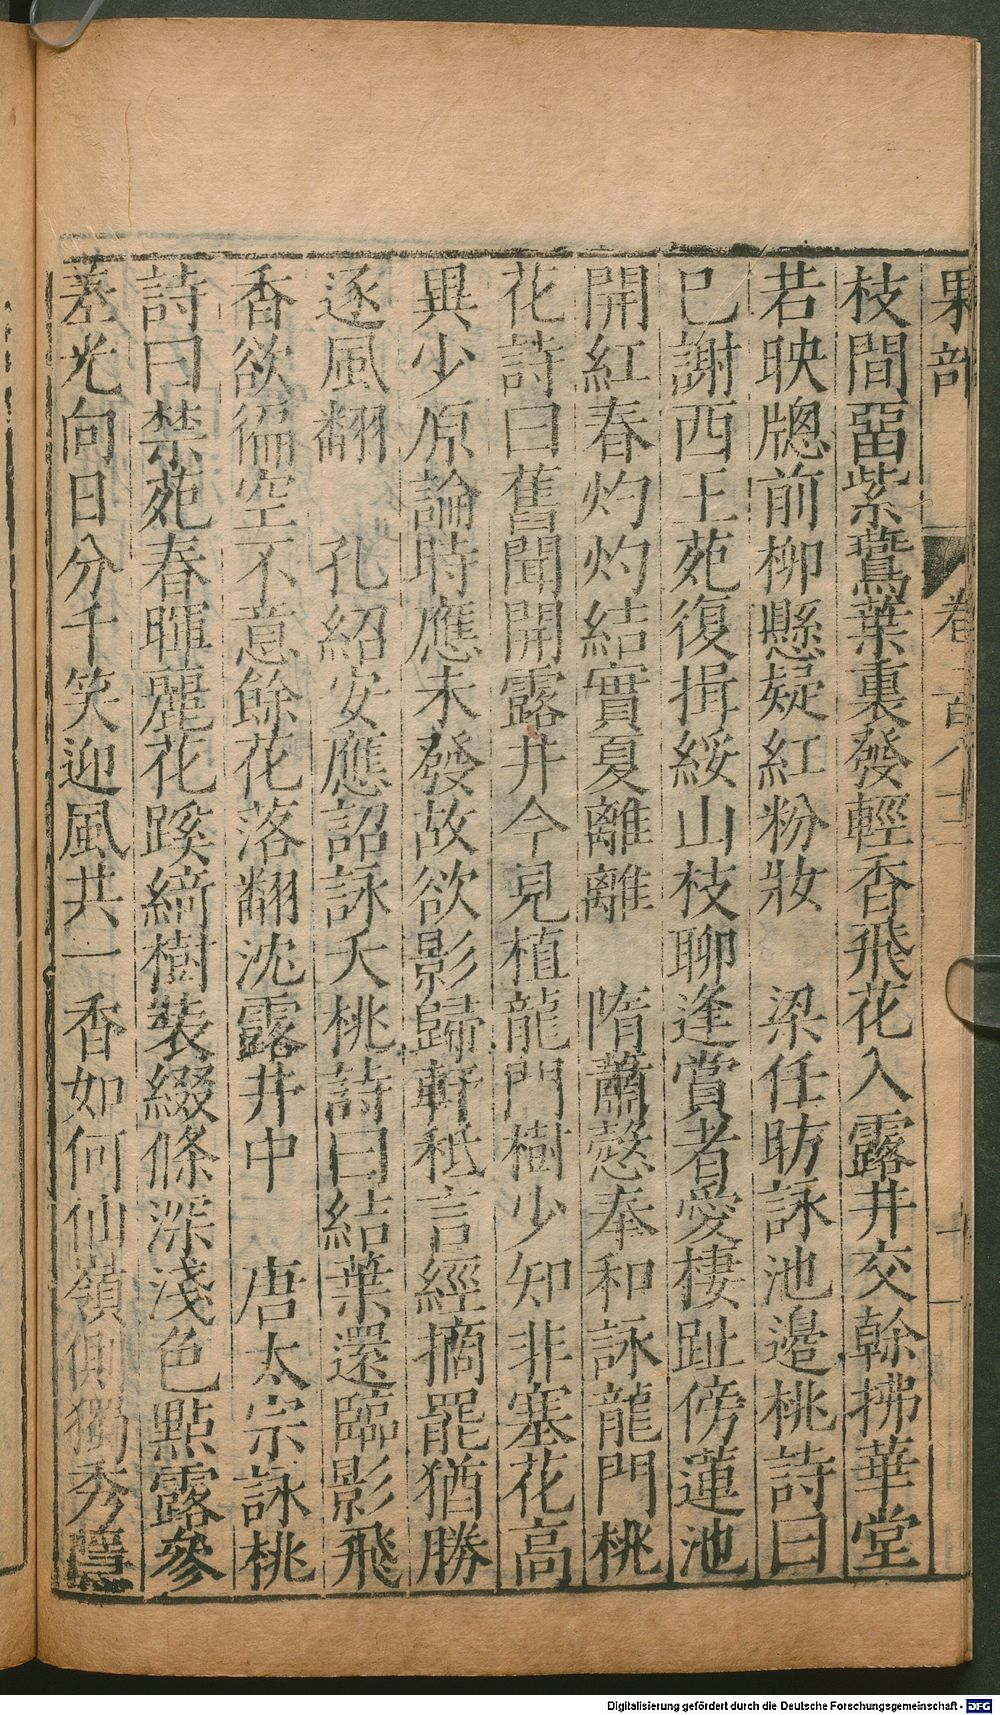 果部 卷一百八十一 十
枝間留紫鷰葉裏發輕香飛花入露井交榦拂華堂
若映牕前柳懸疑紅粉妝 梁任昉詠池邊桃詩曰
已謝西王苑復揖綏山枝聊逢賞者愛棲趾傍蓮池
開紅春灼灼結實夏離離 隋蕭愨奉和詠龍門桃
花詩曰舊聞開露井今見植龍門樹少知非塞花高
異少原論時應未發故欲影歸軒秪言經摘罷猶勝
逐風翻 孔紹安應詔詠夭桃詩曰結葉還臨影飛
香欲徧空不意餘花落翻沈露井中 唐太宗詠桃
詩曰禁苑春暉麗花蹊綺樹裝綴條深淺色點露參
差光向日分千笑迎風共一香如何仙嶺側獨秀隱
Digitalisierung gefördert durch die Deutsche Forschungsgemeinschaft - DFG